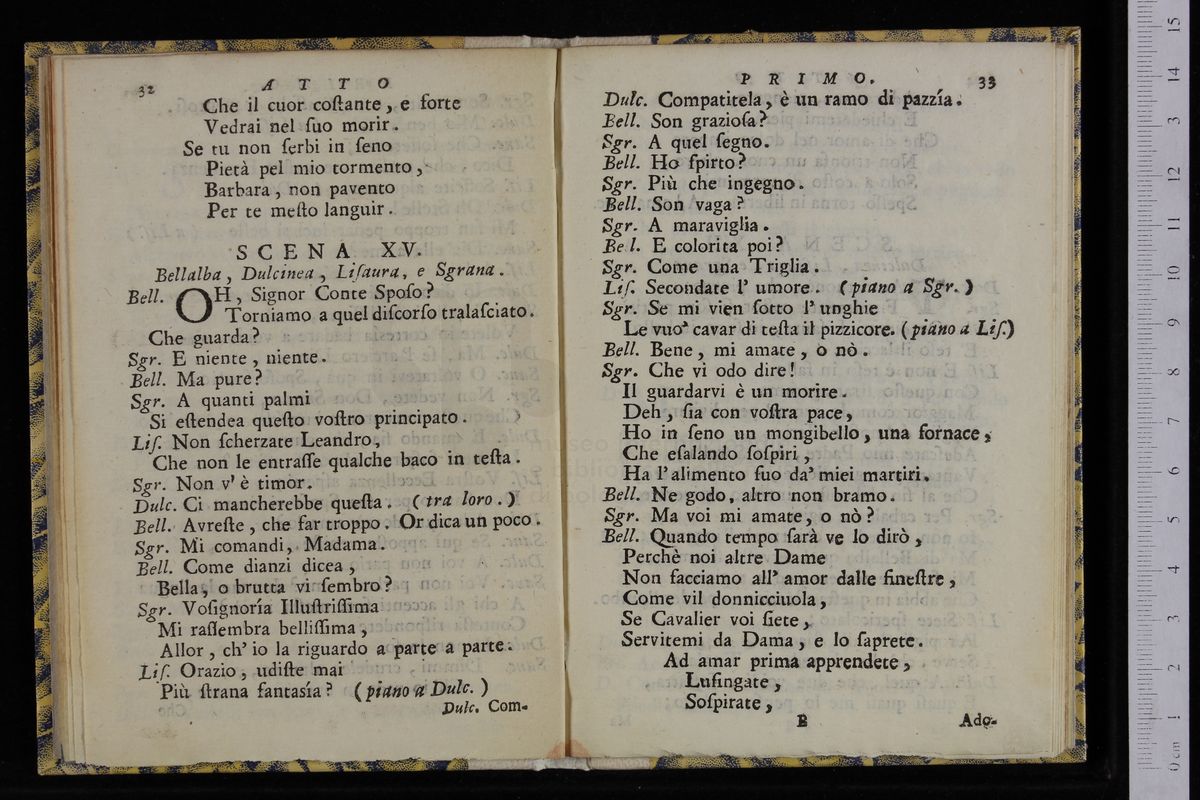 32 ATTO
Che il cuor coſtante, e forte
Vedrai nel ſuo morir.
Se tu non ſerbi in ſeno
Pietà pel mio tormento,
Barbara, non pavento
Per te meſto languir.
SCENA XV.
Bellalba, Dulcinea, Liſaura, e Sgrana.
Bell. OH, Signor Conte Spoſo?
Torniamo a quel diſcorſo tralaſciato.
Che guarda?
Sgr. E niente, niente.
Bell. Ma pure?
Sgr. A quanti palmi
Si eſtendea queſto voſtro principato.
Liſ. Non ſcherzate Leandro,
Che non le entraſſe qualche baco in teſta.
Sgr. Non v' è timor.
Dulc. Ci mancherebbe queſta. (tra loro.)
Bell. Avreſte, che far troppo. Or dica un poco.
Sgr. Mi comandi, Madama.
Bell. Come dianzi dicea,
Bella, o brutta vi ſembro?
Sgr. Voſignoría Illuſtriſſima
Mi raſſembra belliſſima,
Allor, ch' io la riguardo a parte a parte.
Liſ. Orazio, udiſte mai
Più ſtrana fantasía? (piano a Dulc.)
Dulc. Com-
PRIMO. 33
Dulc. Compatitela, è un ramo di pazzía.
Bell. Son grazioſa?
Sgr. A quel ſegno.
Bell. Ho ſpirto?
Sgr. Più che ingegno.
Bell. Son vaga?
Sgr. A maraviglia.
Be l. E colorita poi?
Sgr. Come una Triglia.
Liſ. Secondate l' umore. (piano a Sgr.)
Sgr. Se mi vien ſotto l' unghie
Le vuo' cavar di teſta il pizzicore. (piano a Liſ.)
Bell. Bene, mi amate, o nò.
Sgr. Che vi odo dire!
Il guardarvi è un morire.
Deh, ſia con voſtra pace,
Ho in ſeno un mongibello, una fornace,
Che eſalando ſoſpiri,
Ha l' alimento ſuo da' miei martiri.
Bell. Ne godo, altro non bramo.
Sgr. Ma voi mi amate, o nò?
Bell. Quando tempo ſarà ve lo dirò,
Perchè noi altre Dame
Non facciamo all' amor dalle fineſtre,
Come vil donnicciuola,
Se Cavalier voi ſiete,
Servitemi da Dama, e lo ſaprete.
Ad amar prima apprendete,
Luſingate,
Soſpirate,
B Ado-
0 cm 1 2 3 4 5 6 7 8 9 10 11 12 13 14 15